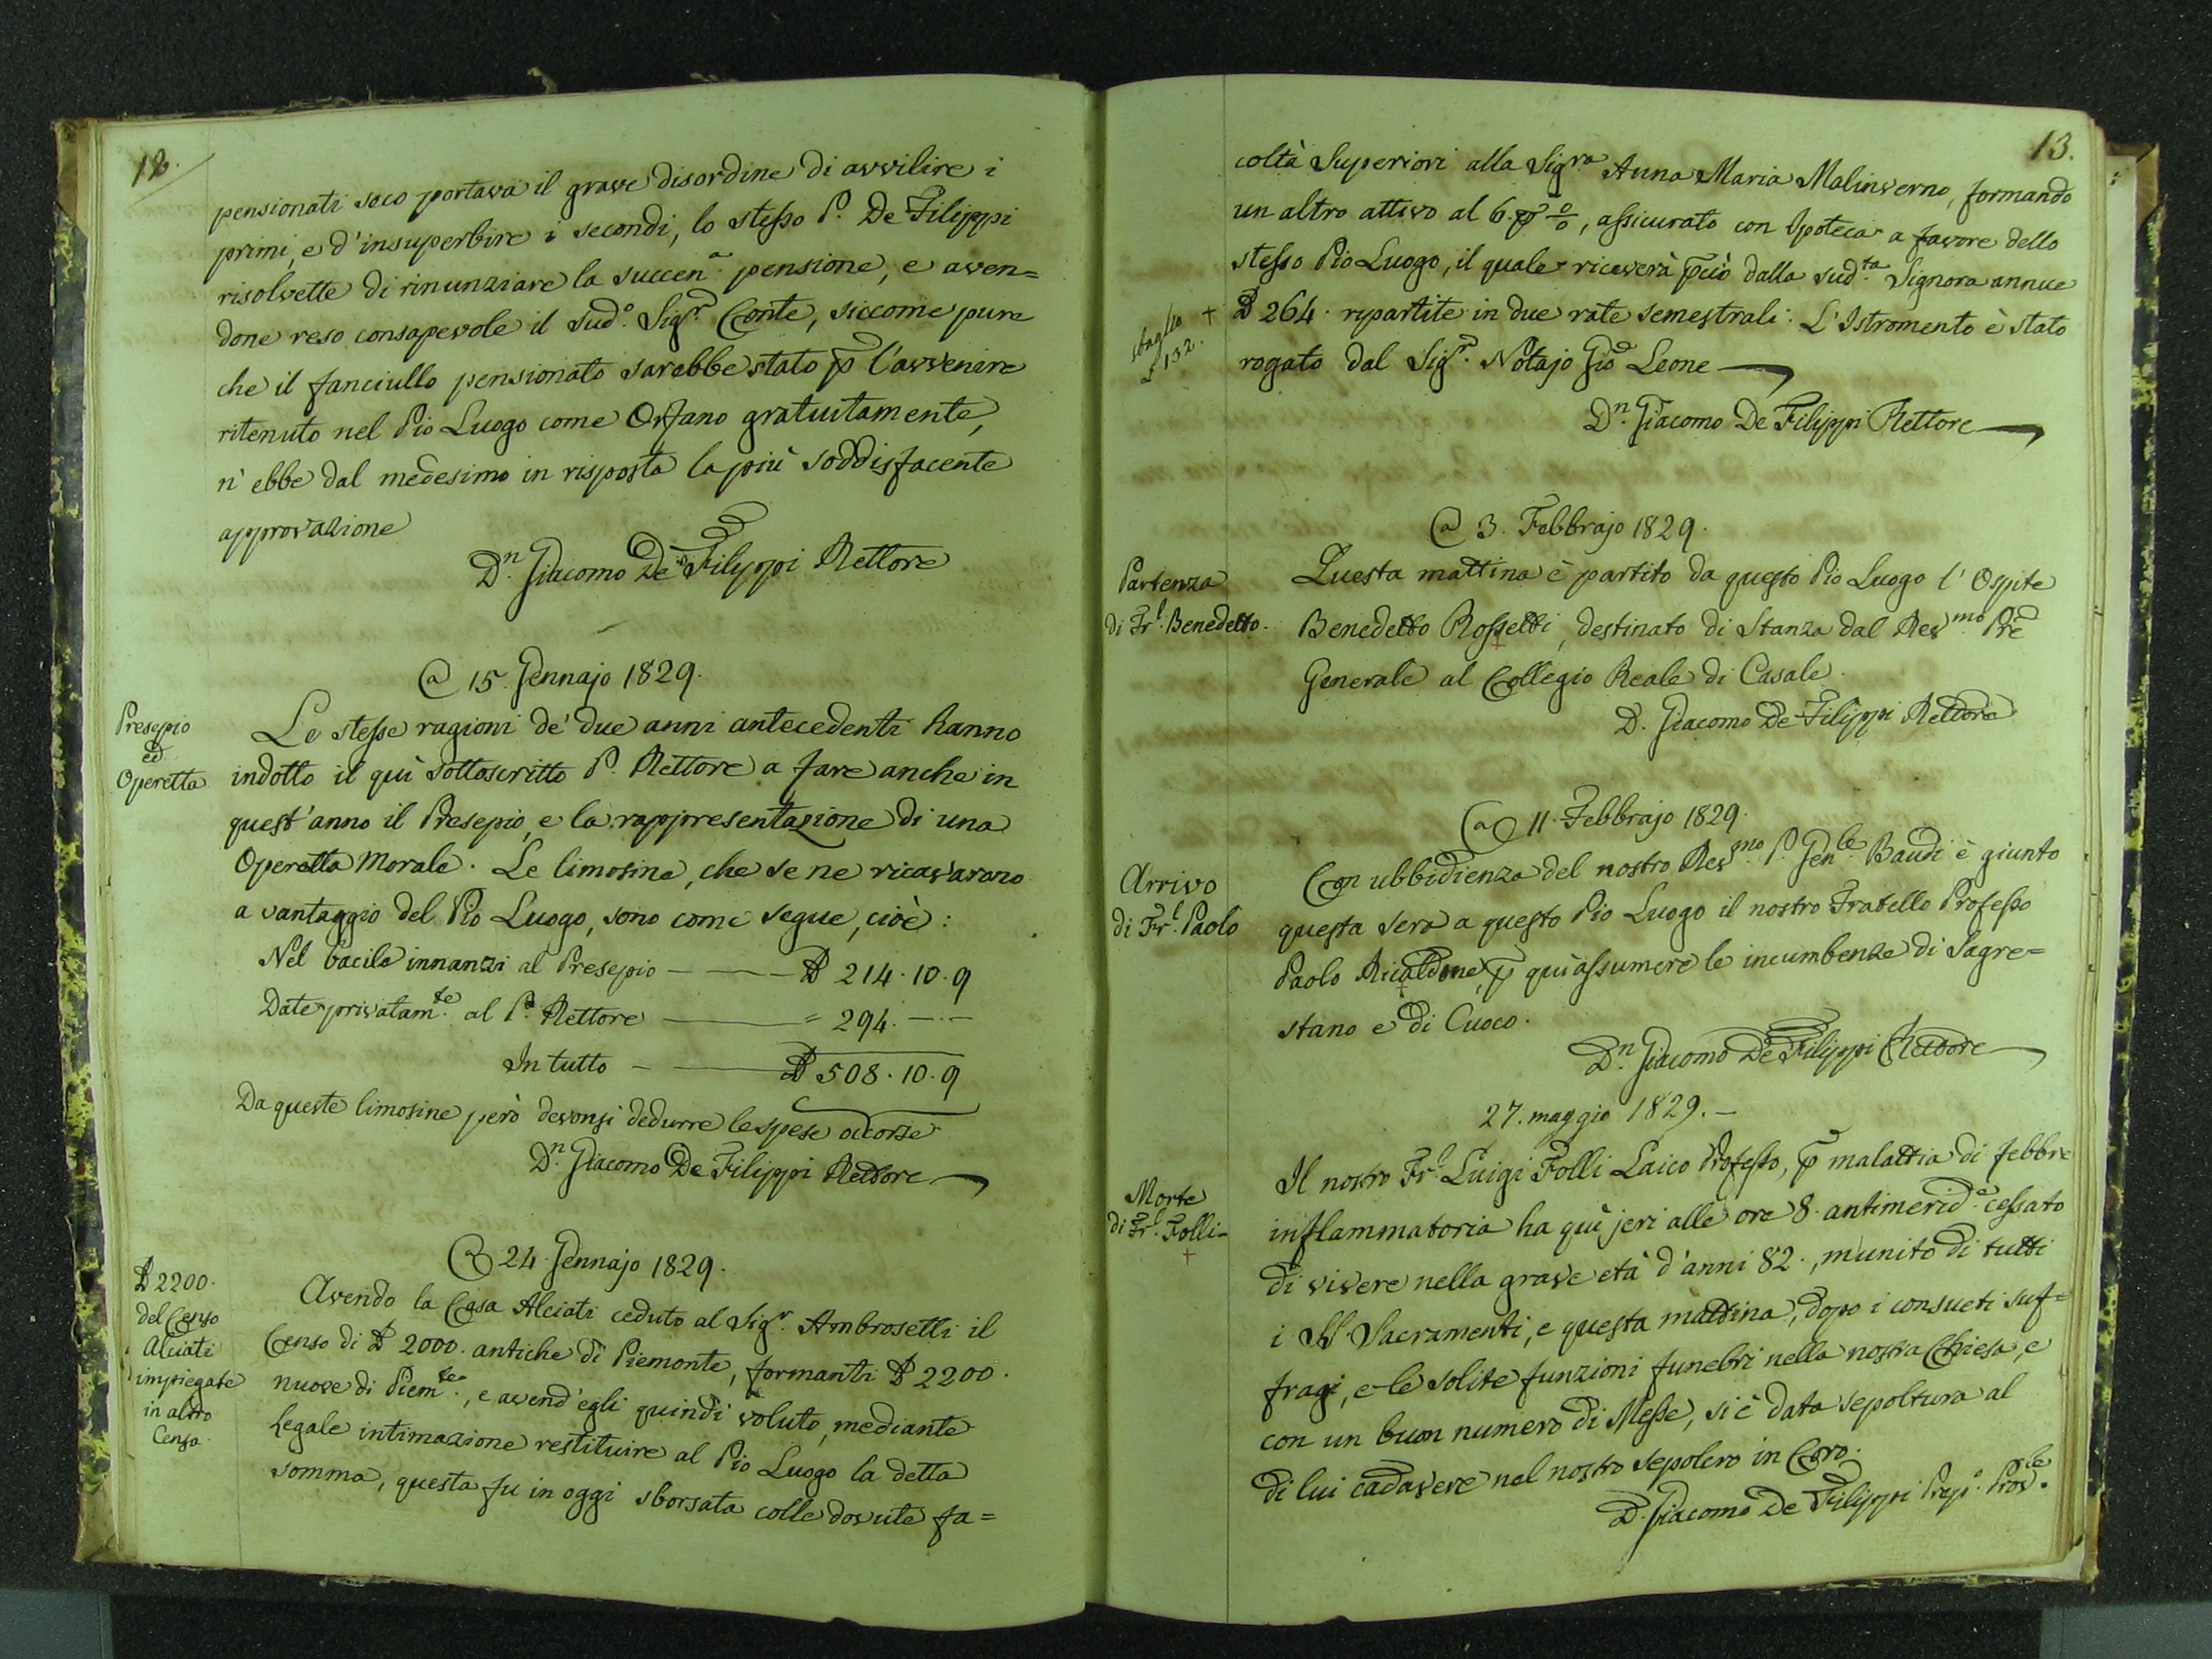 12.
pensionati seco portava il grave disordine di avvilire i
primi, e d'insuperbire i secondi, lo stesso P. De Filippi
risolvette di rinunziare la succen.a pensione, e aven=
done reso consapevole il Sud.o Sig.r Conte, siccome pure
che il fanciullo pensionato sarebbe stato p l'avvenire
ritenuto nel Pio Luogo come Orfano gratuitamente,
n'ebbe dal medesimo in risposta la più soddisfacente
approvazione
D.n Giacomo De Filippi Rettore
A 15. Gennajo 1829.
Presepio
ed
Operetta
Le stesse ragioni de' due anni antecedenti hanno
indotto il quì sottoscritto P. Rettore a fare anche in
quest'anno il Presepio, e la rappresentazione di una
Operetta Morale. Le limosine, che se ne ricavarono
a vantaggio del Pio Luogo, sono come segue, cioè:
Nel bacile innanzi al Presepio — — — ₤ 214.10.9
Date privatam.te al P. Rettore — = 294. —.—
In tutto — — ₤ 508.10.9
Da queste limosine però devonsi dedurre le spese occorse
D.n Giacomo De Filippi Rettore
A 24. Gennajo 1829.
₤ 2200.
del Censo
Alciati
impiegate
in altro
Censo.
Avendo la Casa Alciati ceduto al Sig.r Ambrosetti il
Censo di ₤ 2000. antiche di Piemonte, formanti ₤ 2200.
nuove di Piem.te, e avend'egli quindi voluto, mediante
Legale intimazione restituire al Pio Luogo la detta
somma, questa fu in oggi sborsata colle dovute fa=
13.
coltà Superiori alla Sig.ra Anna Maria Malinverno, formando
un altro attivo al 6. p %, assicurato con Ipoteca a favore dello
stesso Pio Luogo, il quale riceverà pciò dalla sud.ta Signora annue
sbaglio +
₤ 132.
₤ 264. ripartite in due rate semestrali. L'Istromento è stato
rogato dal Sig.r Notajo Gio Leone
D.n Giacomo De Filippi Rettore
A 3. Febbrajo 1829.
Partenza
di Fr.l Benedetto.
Questa mattina è partito da questo Pio Luogo l'Ospite
Benedetto Rossetti, destinato di Stanza dal Rev.mo Pre
Generale al Collegio Reale di Casale.
D. Giacomo De Filippi Rettore
A 11. Febbrajo 1829.
Arrivo
di Fr.l Paolo
Con ubbidienza del nostro Rev.mo P. Gen.le Baudi è giunto
questa sera a questo Pio Luogo il nostro Fratello Professo
Paolo Ricaldone, p quì assumere le incumbenze di Sagre=
stano e di Cuoco.
D.n Giacomo De Filippi Rettore
27. maggio 1829. —
Morte
di Fr.l Folli
+
Il nostro Fr.l Luigi Folli Laico Professo, p malattia di febbre
inflammatoria ha quì jeri alle ore 8. antimerid.e cessato
di vivere nella grave età d'anni 82., munito di tutti
i SS. Sacramenti, e questa mattina, dopo i consueti suf=
fragi, e le solite funzioni funebri nella nostra Chiesa, e
con un buon numero di Messe, si è data sepoltura al
di lui cadavere nel nostro sepolcro in Coro.
D. Giacomo De Filippi Prep.o Prov.le